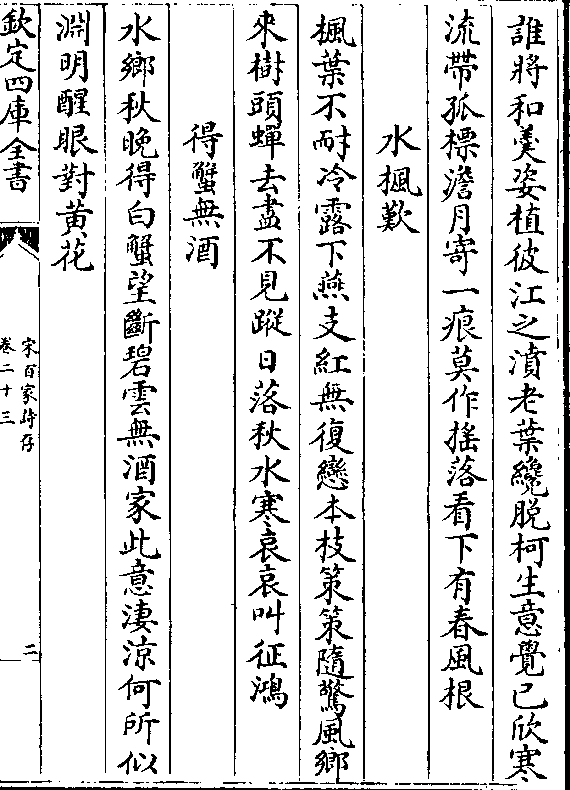 誰將和羮姿植彼江之濆老葉纔脱柯生意覺已欣寒
流帶孤標澹月寄一痕莫作摇落看下有春風根
水楓歎
楓葉不耐冷露下燕支紅無復戀本枝策策隨驚風鄉
來樹頭蟬去盡不見蹤日落秋水寒哀哀叫征鴻
得蟹無酒
水鄉秋晚得白蟹望斷碧雲無酒家此意淒涼何所似
淵明醒眼對黄花
欽定四庫全書
宋百家詩存
卷二十三
二